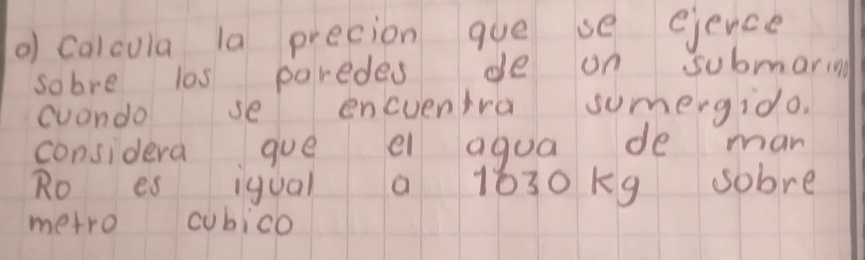 a) calcula la precion que se ejerce
sobre las paredes de un submarino
cuando se encuentra sumergido.
considera que el agua de mar
Ro es igual a 1030 kg sobre
metro cubico